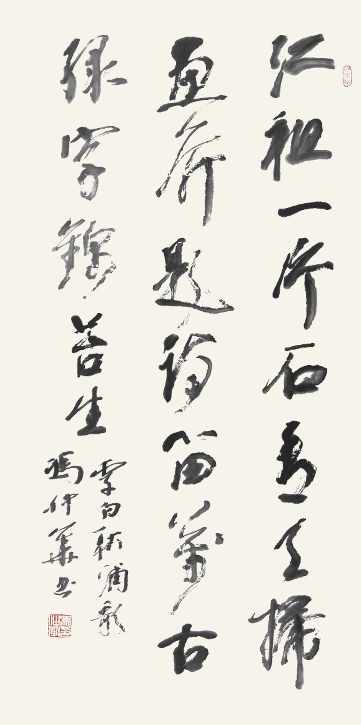 江祖一片石青天掃
畫屏題詩留萬古
綠字錦苔生
李白秋浦歌
馮仲華书